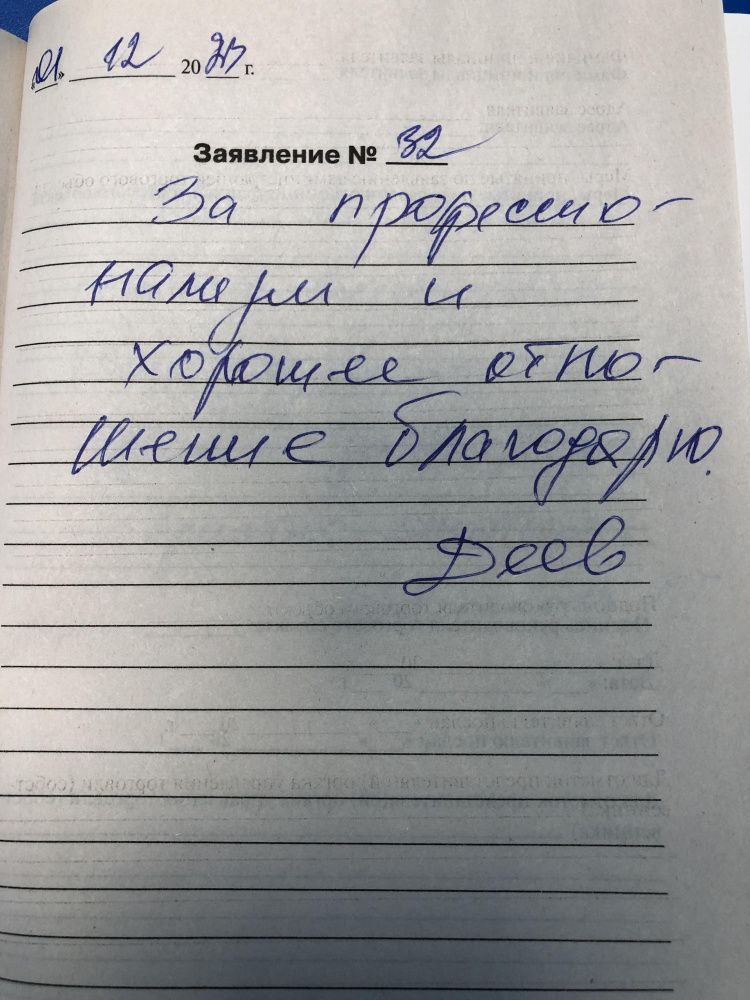 «01» 12 20 г.
Заявление № 32
За профессио-
нализм и
хорошее отно-
шение благодарю.
Деев